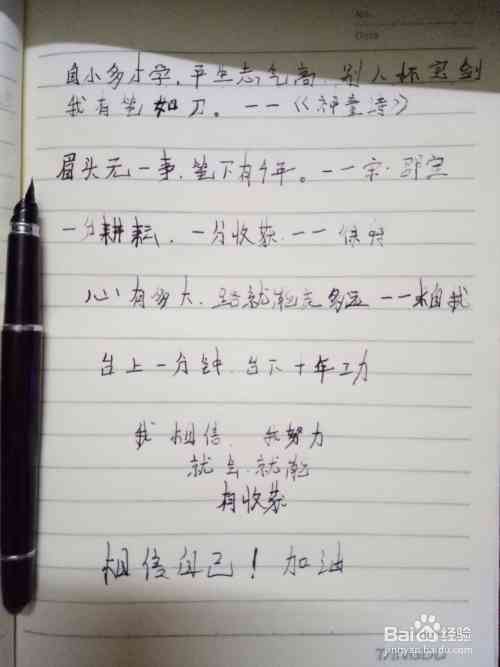 No.
Date
自小多才学,平生志气高,别人怀宝剑
我有笔如刀。——《神童诗》
眉头无一事,笔下有千年。——宋·邵
一分耕耘,一分收获——
心有多大,路就能走多远——来自我
台上一分钟,台下十年工功
我相信,我努力
就会,就能
有收获
相信自己!加油
Baidu经验
jingyan.baidu.com